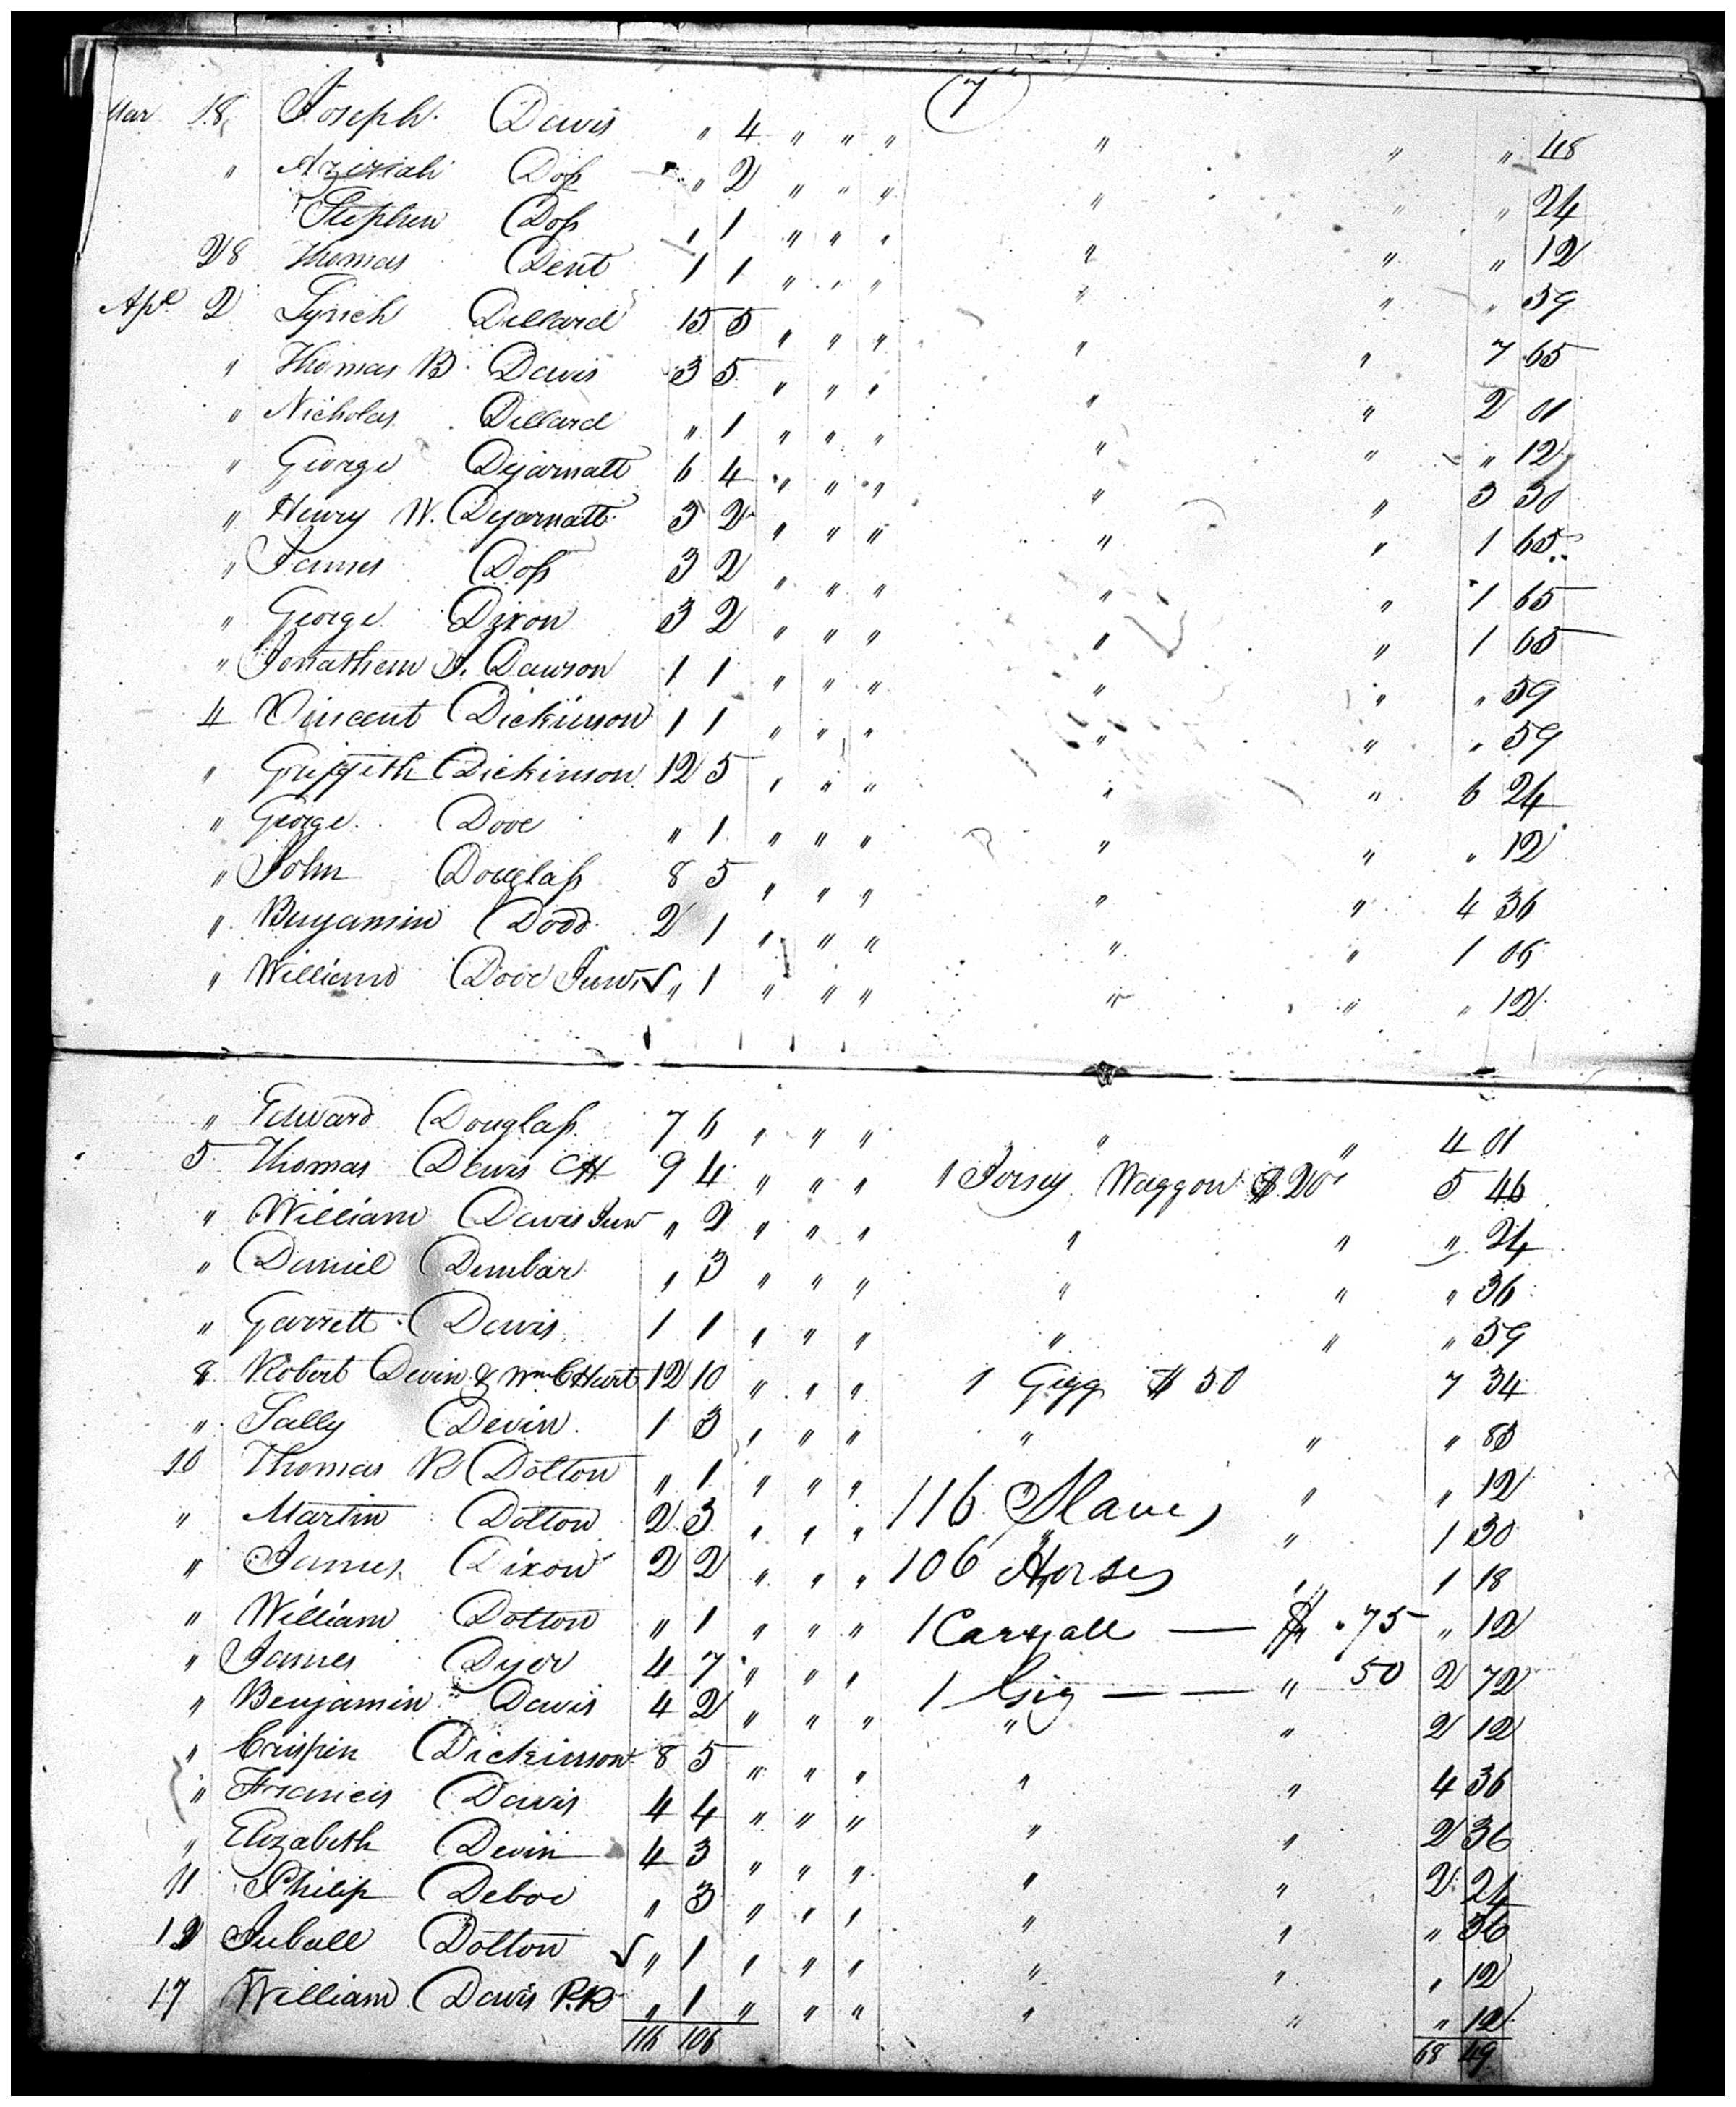 (7)
Mar 18 Joseph Davis " 4 " " " " " " 48
" Azeriah Doss " 2 " " " " " " 24
Stephen Doss " 1 " " " " " " 12
28 Thomas Dent 1 1 " " " " " " 59
Apl 2 Lynch Dillard 15 5 " " " " " 7 65
" Thomas B. Davis 3 5 " " " " " 2 01
" Nicholas Dillard " 1 " " " " " " 12
" George Dejarnatt 6 4 " " " " " 3 30
" Henry W. Dejarnatt 3 2 " " " " " 1 65
" James Doss 3 2 " " " " " 1 65
" George Dixon 3 2 " " " " " 1 65
" Jonathem J. Dawson 1 1 " " " " " " 59
4 Vincent Dickinson 1 1 " " " " " " 59
" Griffith Dickinson 12 5 " " " " " 6 24
" George Dove " 1 " " " " " " 12
" John Douglass 8 5 " " " " " 4 36
" Benjamin Dodd 2 1 " " " " " 1 06
" William Dove Junr " 1 " " " " " " 12
" Edward Douglass 7 6 " " " " " 4 01
5 Thomas Davis CH 9 4 " " " 1 Jersey Waggon $ 20 5 46
" William Davis Junr " 2 " " " " " " 24
" Daniel Dunbar " 3 " " " " " " 36
" Garrett Davis 1 1 " " " " " " 59
8 Robert Devin & Wm C Hurt 12 10 " " " 1 Gigg $ 50 7 34
" Sally Devin 1 3 " " " " " " 83
10 Thomas R Dolton " 1 " " " " " 12
" Martin Dolton 2 3 " " " 116 Slaves " 1 30
" James Dixon 2 2 " " " 106 Horses " 1 18
" William Dolton " 1 " " " 1 Carryall — $ 75 " 12
" James Dyer 4 7 " " " 1 Gig — — " 50 2 72
" Benjamin Davis 4 2 " " " " " 2 12
" Crispin Dickinson 8 5 " " " " " 4 36
" Francis Davis 4 4 " " " " " 2 36
" Elizabeth Devin 4 3 " " " " " 2 24
11 Philip Deboe " 3 " " " " " " 36
12 Juball Dolton " 1 " " " " " " 12
17 William Davis P.R " 1 " " " " " " 12
116 106 68 49